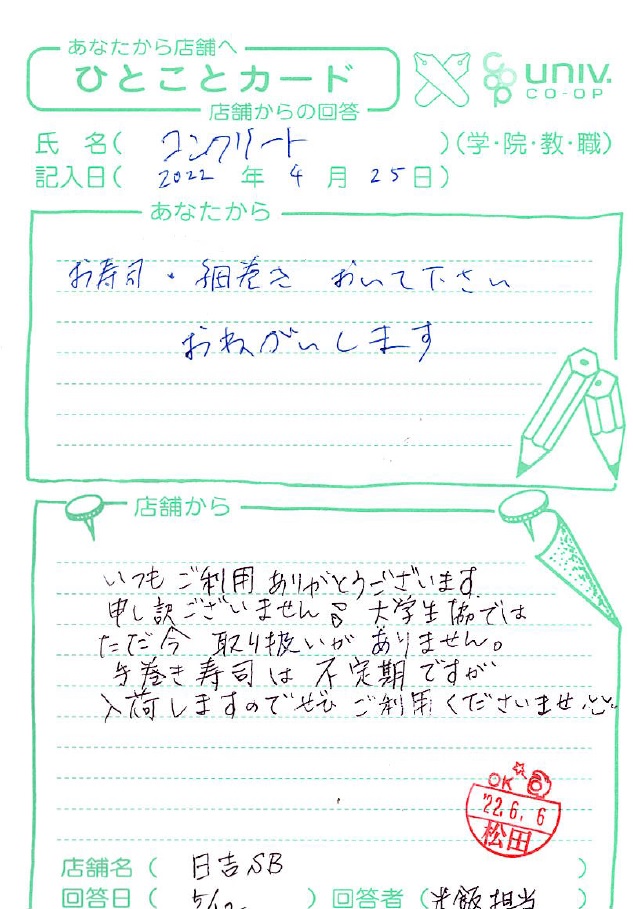 あなたから店舗へ
ひとことカード
店舗からの回答
univ.
CO-OP
氏 名( コンクリート )(学・院・教・職)
記入日( 2022 年 4 月 25日)
あなたから
お寿司・細巻き おいて下さい
おねがいします
店舗から
いつもご利用ありがとうございます
申し訳ございません 大学生協では
ただ今 取り扱いがありません。
手巻き寿司は不定期ですが
入荷しますのでぜひ ご利用くださいませ
OK
'22.6.6
松田
店舗名( 日吉SB )
回答日( ) 回答者( 担当 )